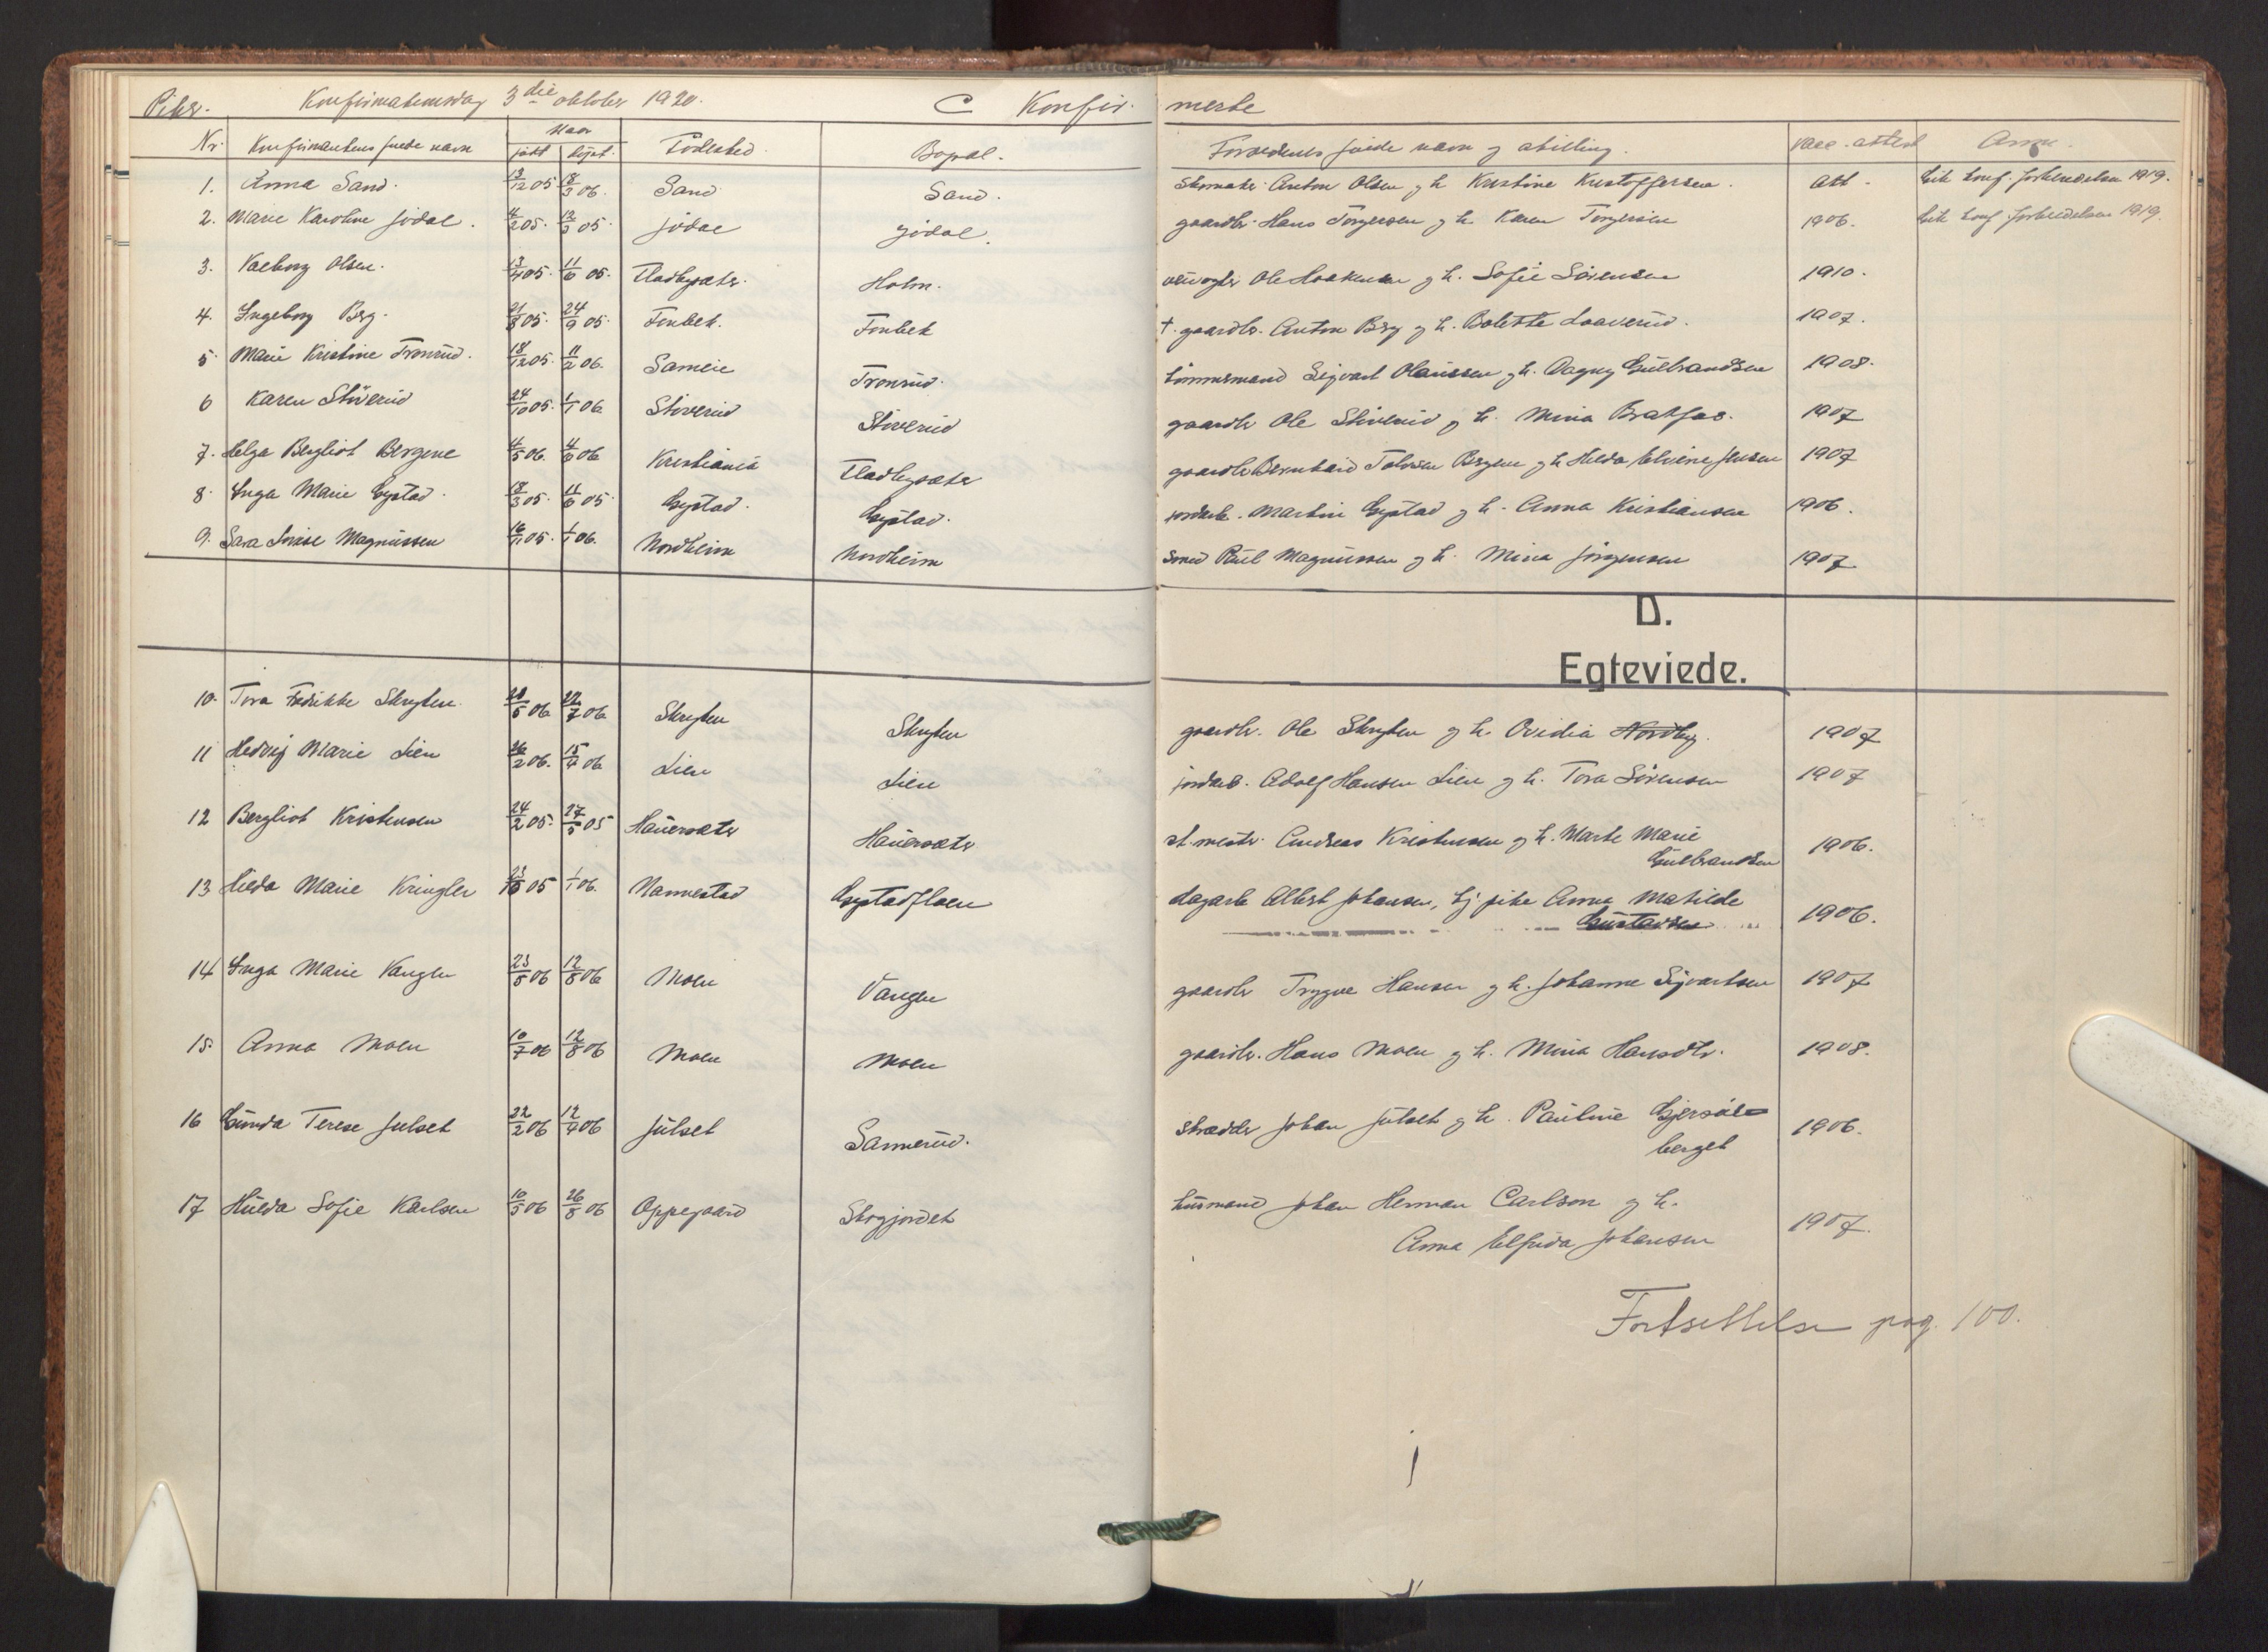 Piker. Konfirmationsdag 3die oktober 1920. C Konfir- merte
Nr. Konfirmantens fulde navn Naar født døpt. Fødested. Bopæl. Forældrenes fulde navn og stilling. Vacc. attest Anm.
1. Anna Sand. 13/12 05 18/3 06. Sand Sand. Skomaker Anton Olsen og h. Kristine Kristoffersen. att. Gik konf. forberedelsen 1919.
2. Marie Karoline Jødal. 4/2 05. 12/3 05. Jødal Jødal. gaardbr. Hans Torgersen og h. Karen Torgersen 1906. Gik konf. forberedelsen 1919.
3. Valborg Olsen. 13/4 05. 11/6 05. Fladbysæter. Holm. veivogter Ole Haakensen og h. Sofie Sørensen 1910.
4. Ingeborg Berg. 21/8 05. 24/9 05. Finbek. Finbek † gaardbr. Anton Berg og h. Bolette Laaverud. 1907.
5. Marie Kristine Tronrud. 18/12 05. 11/2 06. Sameie Tronrud. tømmermand Sigvart Olaussen og h. Dagny Gulbrandsen 1908.
6 Karen Støverud 24/10 05. 1/1 06. Støverud Støverud gaardbr Ole Støverud og h. Mina Bratfos. 1907
7. Helga Bergliot Bergene 4/5 06. 4/6 06 Kristiania Fladbysæter gaardbr Bernhard Tolvsen Bergene og h Hilda Elvine Jensen 1907
8. Inga Marie Gystad. 18/3 05. 11/6 05. Gystad. Gystad. jordarb. Martin Gystad og h. Anna Kristiansen 1906.
9. Sara Lovise Magnussen 16/11 05. 1/1 06. Nordheim Nordheim Smed Paul Magnussen og h. Mina Jørgensen 1907.
D.
Egteviede.
10. Tora Fredrikke Skrysten. 28/5 06. 22/7 06. Skrysten Skrysten gaardbr. Ole Skrysten og h. Ovidia Nordby. 1907
11 Hedvig Marie Lien 26/2 06. 15/4 06. Lien Lien jordarb. Adolf Hansen Lien og h. Tora Sørensen 1907
12 Bergliot Kristensen 24/2 05. 27/5 05 Hauersæter Hauersæter st.mester Andreas Kristensen og h. Marte Marie
Gulbrandsen 1906.
13 Hilda Marie Kringler 23/10 05 1/1 06. Nannestad Gystadfloen dagarb Albert Johansen, Ej pike Anna Matilde
Gustavsen 1906.
14 Inga Marie Vangen 23/5 06 12/8 06 Moen Vangen gaardbr Trygve Hansen og h. Johanne Sigvartsen 1907
15. Anna Moen 10/7 06 12/8 06 Moen Moen gaardbr. Hans Moen og h. Mina Hansdtr. 1908.
16 Gunda Terese Julset 22/2 06 12/4 06 Julset Sannerud. Skrædder Johan Julset og h. Pauline Gjersøe-
berget 1906.
17 Hulda Sofie Karlsen 10/5 06 26/8 06 Oppegaard Skogjordet husmand Johan Herman Carlson og h.
Anna Elfrida Johansen 1907.
Fortsettelse pag. 100.